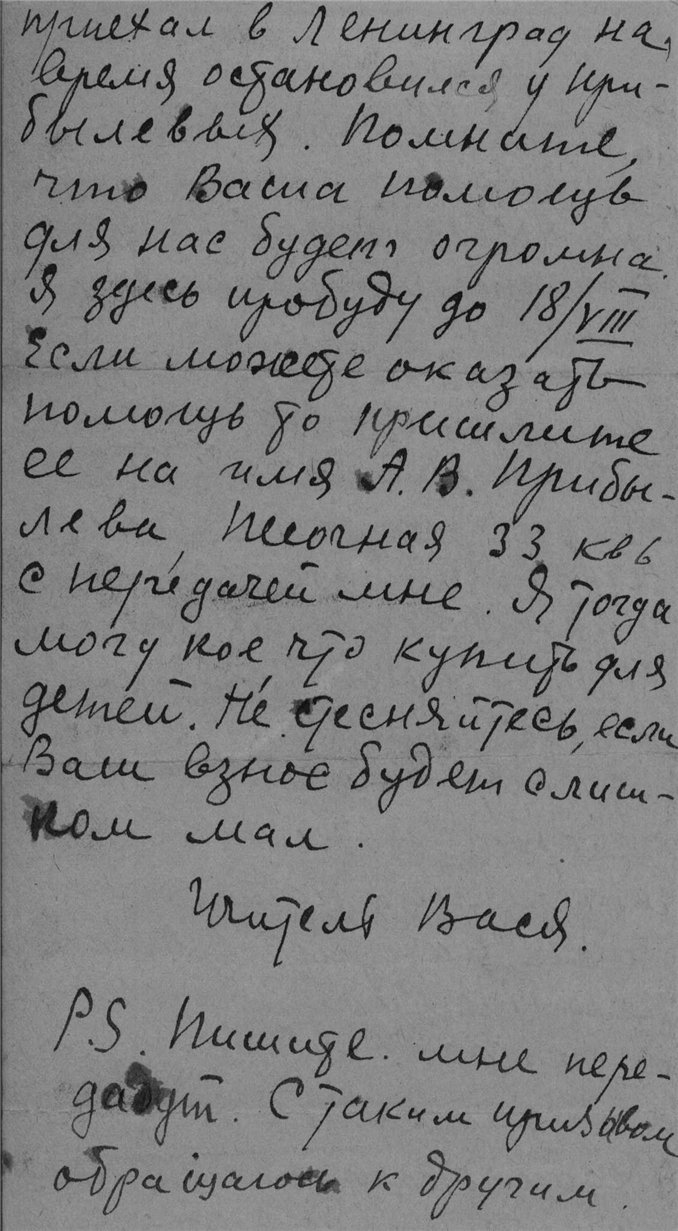 приехал в Ленинград на
время остановился у При-
былевых. Помните,
что Ваша помощь
для нас будет огромна.
Я здесь пробуду до 18/VIII
Если можете оказать
помощь то пришлите
ее на имя А.В. Прибы-
лева, Песочная 33 кв 6
с передачей мне. Я тогда
могу кое, что купить для
детей. Не стесняйтесь, если
Ваш взнос будет слиш-
ком мал.
Учитель Вася.
P.S. Пишите. мне пере-
дадут. С таким призывом
обращаюсь к другим.